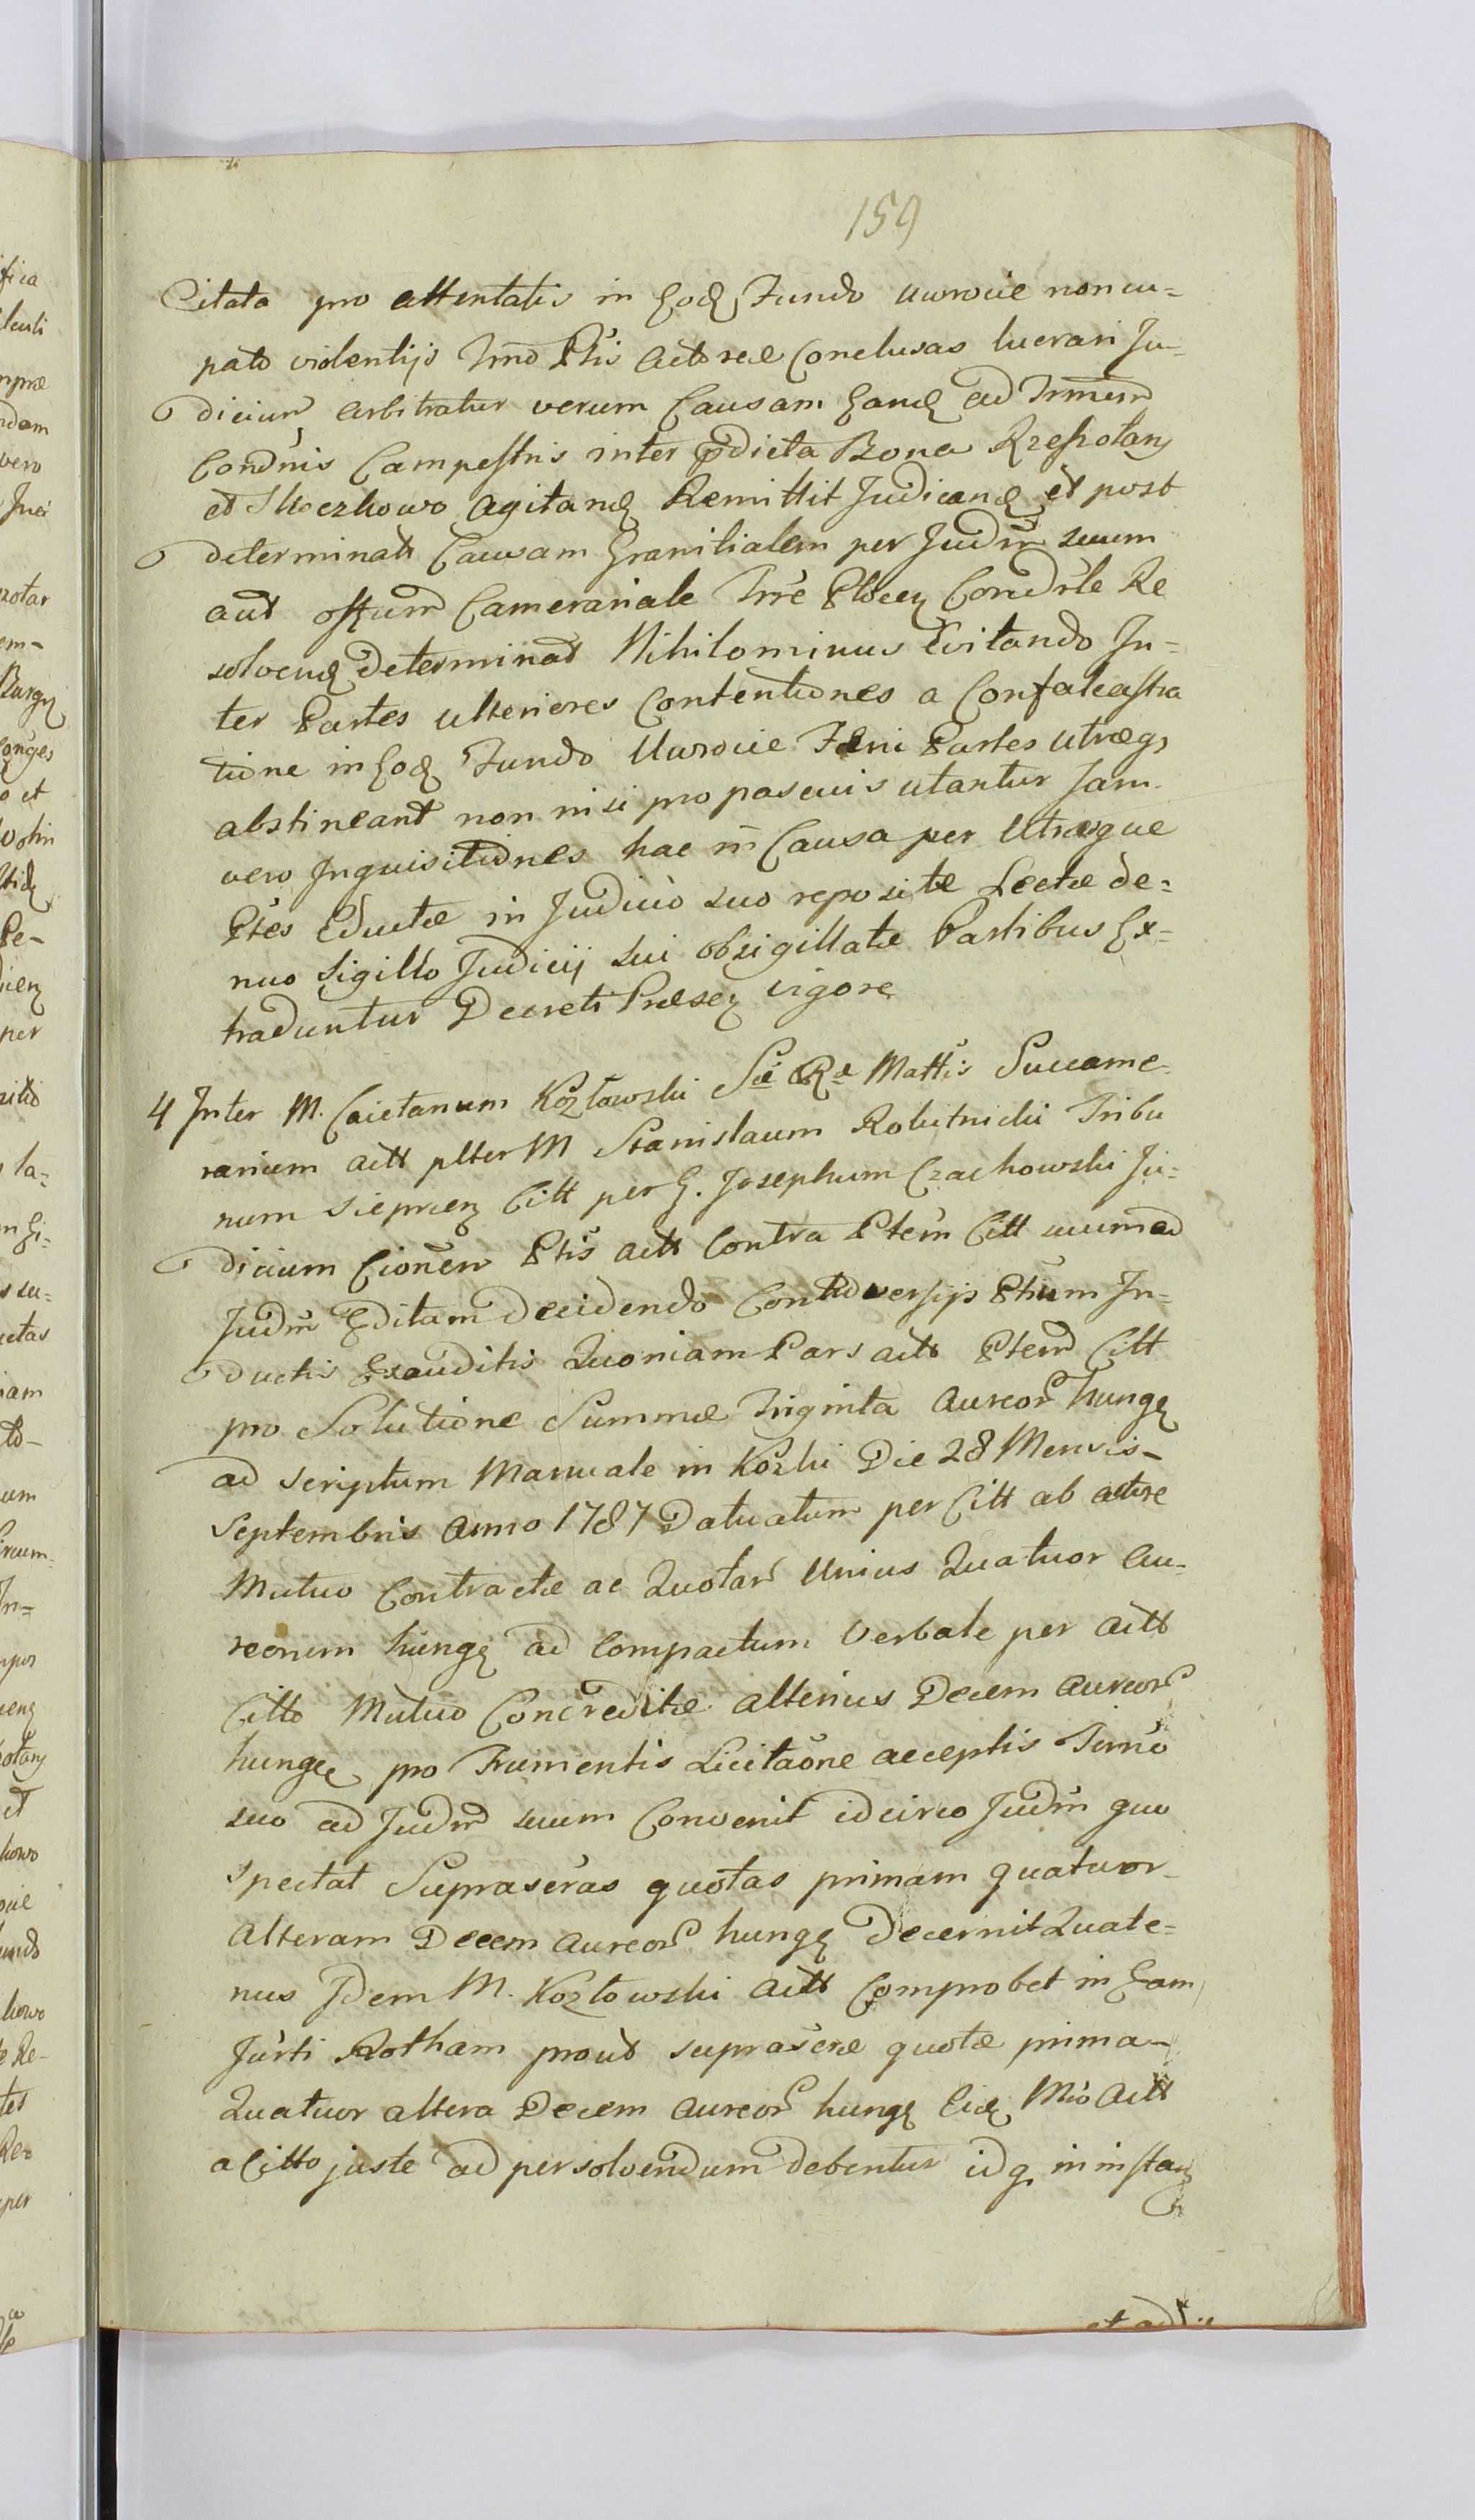 159
Citata pro attentatis in Eod Fundo Uwrocie noncu-
pato violentijs Imo Ptis Actoreæ Conclusas lucrari Ju-
dicium arbitratur verum Causam Eand ad Trmum
Condnis Campestris inter pdicta Bona Rzeszotary
et Skoczkowo agitand Remittit Judicand et post
determinatā Causam Granitialem per Judm suum
aut offum Camerariale Trræ Plocen Condrle Re
solvend determinat Nihilominus Evitando In-
ter Partes ulteriores Contentiones a Confalcastra
tione in Eod Fundo Uwrocie Fæni Partes utræqs
abstineant non nisi pro pascuis utantur Jam
vero Inquisitiones hac in Causa per Utrasque
Ptes Eductæ in Judicio suo repositæ Lectæ de-
nuo Sigillo Judicij sui obsigillatæ Partibus Ex-
traduntur Decreti Præsen vigore
4 Inter M. Caietanum Kozłowski Sæ Ræ Mattis Succame-
rarium actt plter M Stanislaum Robitnicki Tribu
num Sieprcen Citt per G. Josephum Czachowski Ju-
dicium Cionem Ptis actt Contra Ptem Citt suum ad
Judm Editam decidendo Controversijs Ptium In-
ductis Exauditis Quoniam Pars actt Ptem Citt
pro Solutione Summæ Triginta Aureor hung
ad Scriptum Manuale in Kozki Die 28 Mensis
Septembris Anno 1787 Datuatum per Citt ab actore
Mutuo Contractæ ac Quotar Unius Quatuor Au-
reorum hung ad Compactum Verbale per actt
Citto Mutuo Concreditæ alterius Decem Aureor
hung pro Frumentis Licitaone acceptis Termo
suo ad Judm suum Convenit idcirco Judm quo
spectat Suprasctas quotas primam quatuor
Alteram Decem Aureor hung Decernit Quate-
nus Idem M. Kozłowski actt Comprobet in Eam
Jurti Rotham prout suprascræ quotæ prima
Quatuor altera Decem Aureor hung Eid Mco Actt
a Citto juste ad persolvendum debentur idq in instan